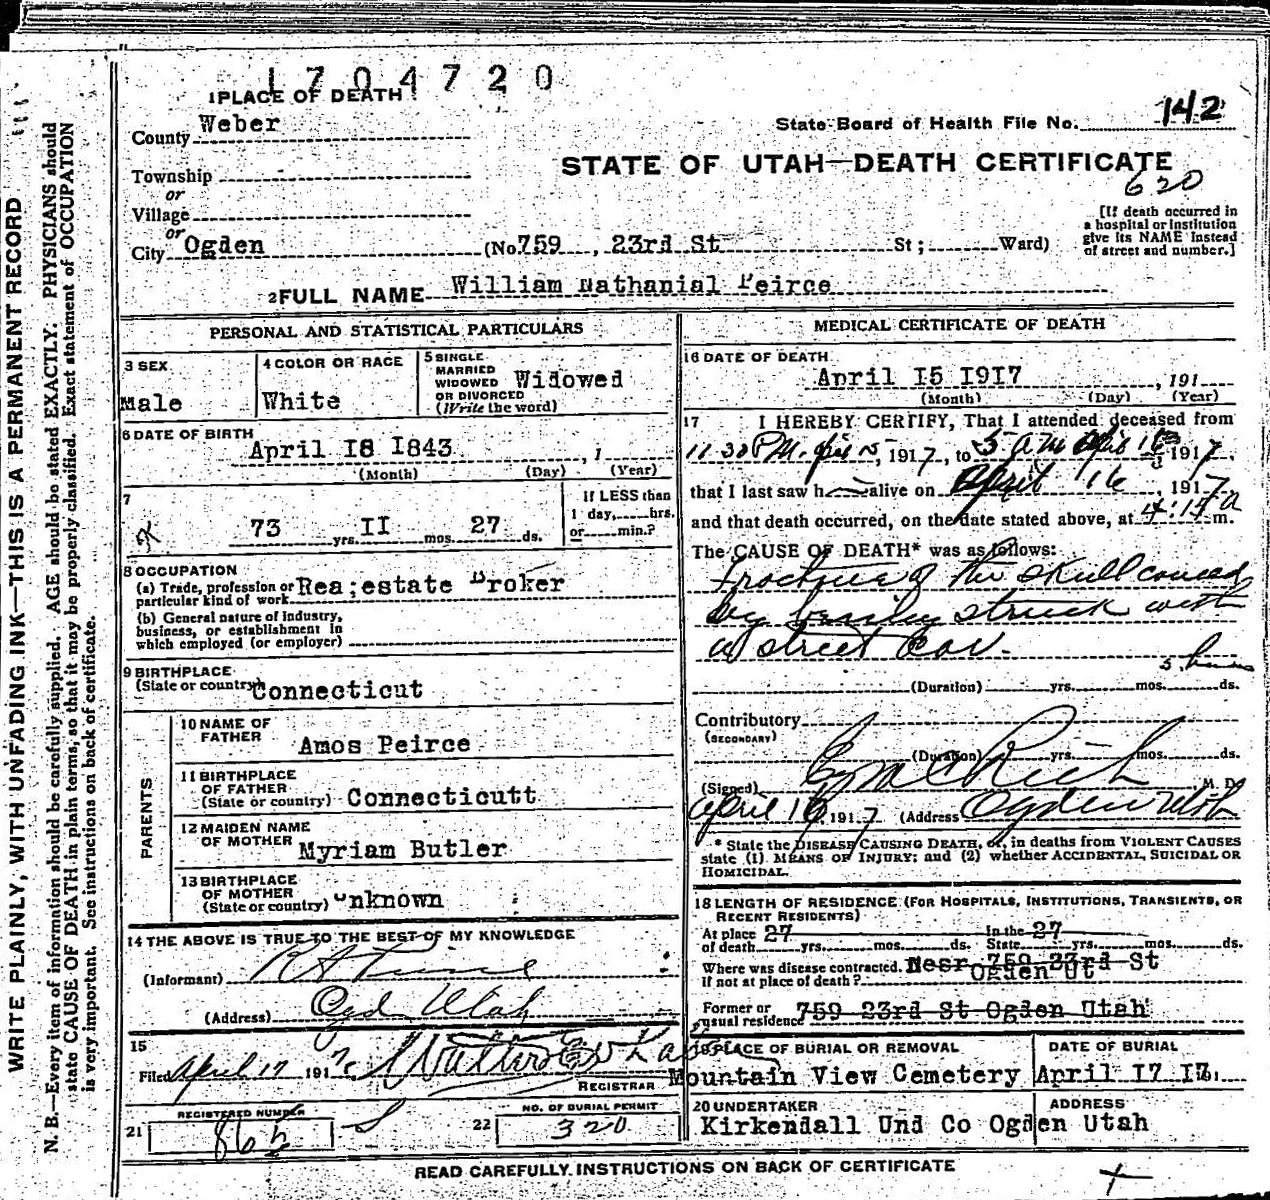 1704720
1 PLACE OF DEATH
County Weber
State Board of Health File No. 142
STATE OF UTAH—DEATH CERTIFICATE
620
Township
or
Village
or
City Ogden (No 759, 23rd St St; Ward)
[If death occurred in
a hospital or institution
give its NAME instead
of street and number.]
2 FULL NAME William Nathanial Peirce
PERSONAL AND STATISTICAL PARTICULARS
3 SEX
Male
4 COLOR OR RACE
White
5 SINGLE
MARRIED
WIDOWED Widowed
OR DIVORCED
(Write the word)
6 DATE OF BIRTH
April I8 I843, 1
(Month) (Day) (Year)
7
73 yrs. II mos. 27 ds.
If LESS than
1 day, hrs.
or min.?
8 OCCUPATION
(a) Trade, profession or Rea;estate Broker
particular kind of work
(b) General nature of industry,
business, or establishment in
which employed (or employer)
9 BIRTHPLACE
(State or country) Connecticut
PARENTS
10 NAME OF
FATHER Amos Peirce
11 BIRTHPLACE
OF FATHER
(State or country) Connecticutt
12 MAIDEN NAME
OF MOTHER Myriam Butler
13 BIRTHPLACE
OF MOTHER
(State or country) Unknown
14 THE ABOVE IS TRUE TO THE BEST OF MY KNOWLEDGE
(Informant)
(Address) Ogd Utah
15
Filed April 17 191
REGISTRAR
REGISTERED NUMBER
21
NO. OF BURIAL PERMIT
22 320
MEDICAL CERTIFICATE OF DEATH
16 DATE OF DEATH
April I5 I9I7, 191
(Month) (Day) (Year)
17 I HEREBY CERTIFY, That I attended deceased from
11 30 PM. 15, 1917, to 5 am 16, 1917,
that I last saw h alive on April 16, 1917
and that death occurred, on the date stated above, at 4:15 a m.
The CAUSE OF DEATH* was as follows:
Fracture of the skull caused
by being struck with
a street car.
5 hours
(Duration) yrs. mos. ds.
Contributory
(SECONDARY)
(Duration) yrs. mos. ds.
(Signed) Rich M. D.
April 16, 1917 (Address) Ogden Utah
* State the DISEASE CAUSING DEATH, or, in deaths from VIOLENT CAUSES
state (1) MEANS OF INJURY; and (2) whether ACCIDENTAL, SUICIDAL OR
HOMICIDAL.
18 LENGTH OF RESIDENCE (FOR HOSPITALS, INSTITUTIONS, TRANSIENTS, OR
RECENT RESIDENTS)
At place 27 In the 27
of death yrs. mos. ds. State yrs. mos. ds.
Where was disease contracted. Near 759 23rd St
if not at place of death? Ogden Ut
Former or
usual residence 759 23rd St Ogden Utah
19 PLACE OF BURIAL OR REMOVAL
Mountain View Cemetery
DATE OF BURIAL
April I7 I7 191
20 UNDERTAKER
Kirkendall Und Co Ogden Utah
ADDRESS
READ CAREFULLY INSTRUCTIONS ON BACK OF CERTIFICATE
WRITE PLAINLY, WITH UNFADING INK—THIS IS A PERMANENT RECORD
N. B.—Every item of information should be carefully supplied. AGE should be stated EXACTLY. PHYSICIANS should
state CAUSE OF DEATH in plain terms, so that it may be properly classified. Exact statement of OCCUPATION
is very important. See instructions on back of certificate.